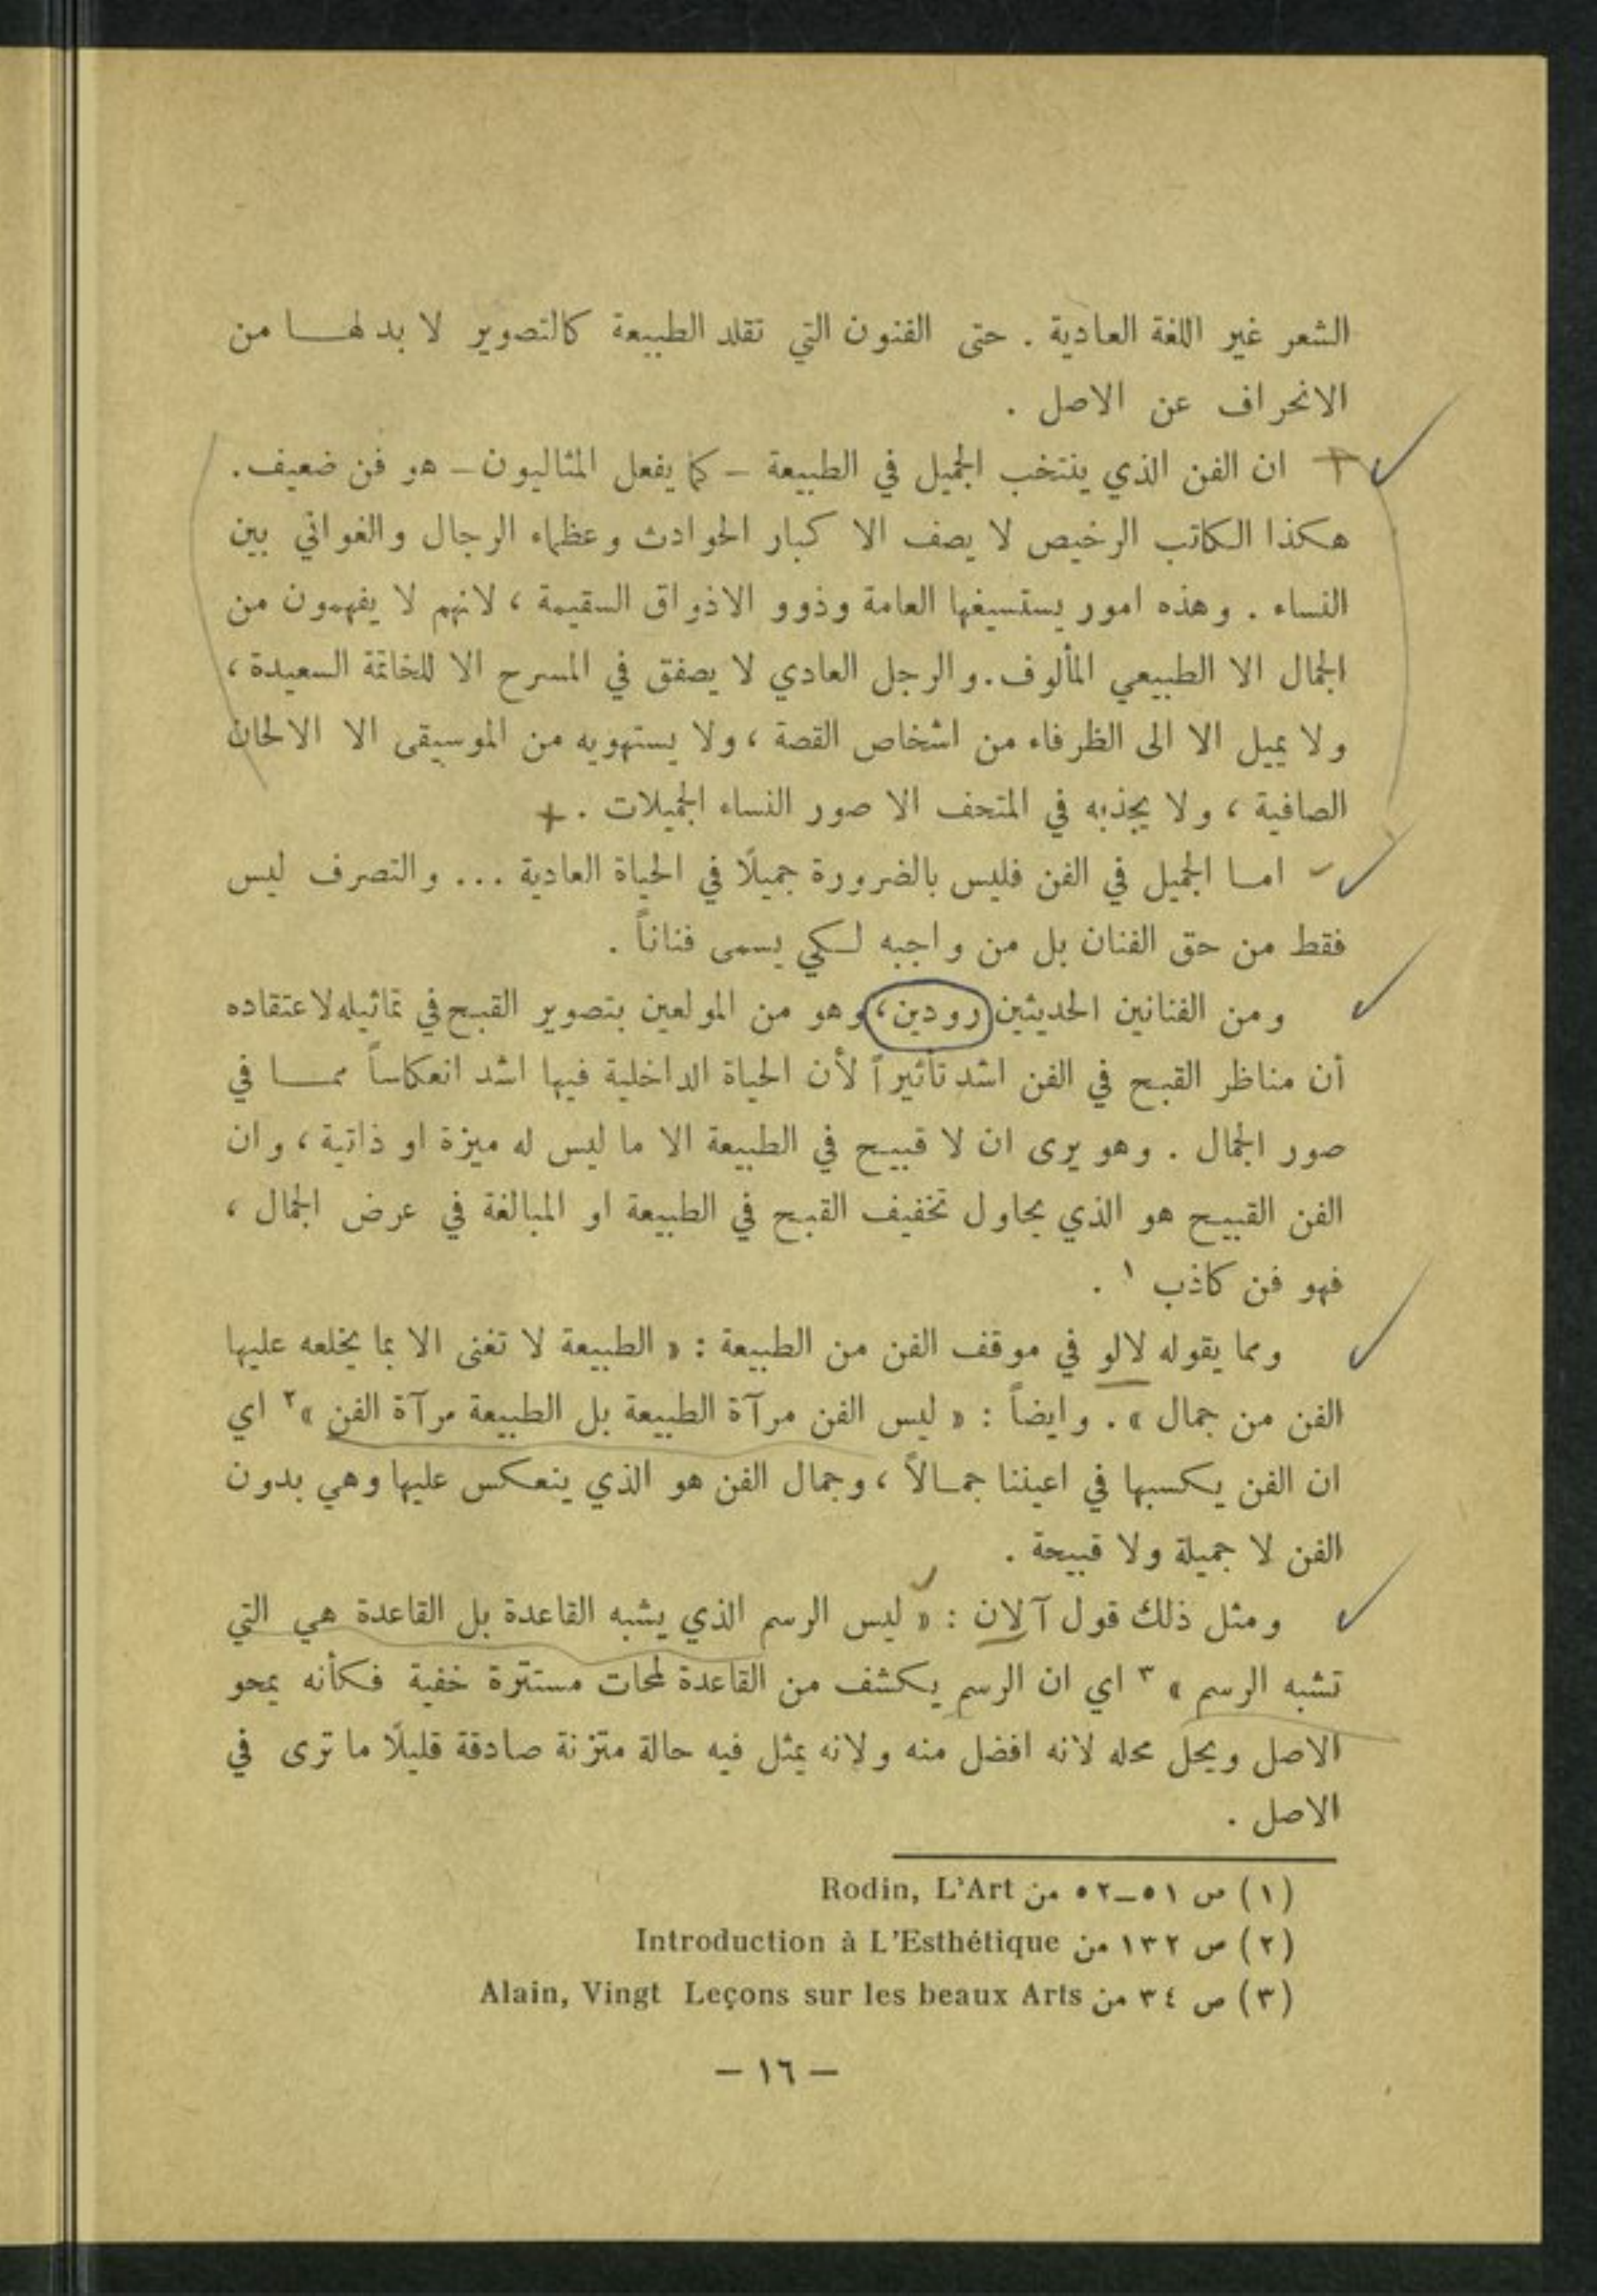 الشعر غير اللغة العادية . حتى الفنون التي تقلد الطبيعة كالتصوير لا بد لهـا من
الانحراف عن الاصل .
ان الفن الذي ينتخب الجميل في الطبيعة – كما يفعل المثاليون – هو فن ضعيف .
هكذا الكاتب الرخيص لا يصف الا كبار الحوادث وعظماء الرجال والغواني بين
النساء . وهذه امور يستسيغها العامة وذوو الاذواق السقيمة ، لانهم لا يفهمون من
الجمال الا الطبيعي المألوف . والرجل العادي لا يصفق في المسرح الا للخاتمة السعيدة ،
ولا يميل الا الى الظرفاء من اشخاص القصة ، ولا يستهويه من الموسيقى الا الالحان
الصافية ، ولا يجذبه في المتحف الا صور النساء الجميلات . +
امـا الجميل في الفن فليس بالضرورة جميلًا في الحياة العادية ... والتصرف ليس
فقط من حق الفنان بل من واجبه لـكي يسمى فناناً .
ومن الفنانين الحديثين رودين ، وهو من المولعين بتصوير القبـح في تماثيله لاعتقاده
أن مناظر القبـح في الفن اشد تأثيراً لأن الحياة الداخلية فيها اشد انعكاساً ممـا في
صور الجمال . وهو يرى ان لا قبيـح في الطبيعة الا ما ليس له ميزة او ذاتية ، وان
الفن القبيـح هو الذي يحاول تخفيف القبـح في الطبيعة او المبالغة في عرض الجمال ،
فهو فن كاذب ١ .
ومما يقوله لالو في موقف الفن من الطبيعة : « الطبيعة لا تغنى الا بما يخلعه عليها
الفن من جمال » . وايضاً : « ليس الفن مرآة الطبيعة بل الطبيعة مرآة الفن » ٢ اي
ان الفن يـكسبها في اعيننا جمـالاً ، وجمال الفن هو الذي ينعـكس عليها وهي بدون
الفن لا جميلة ولا قبيحة .
ومثل ذلك قول آلان : « ليس الرسم الذي يشبه القاعدة بل القاعدة هي التي
تشبه الرسم » ٣ اي ان الرسم يـكشف من القاعدة لمحات مستترة خفية فـكأنه يمحو
الاصل ويحل محله لانه افضل منه ولانه يمثل فيه حالة متزنة صادقة قليلًا ما ترى في
الاصل .
(١) ص ٥١–٥٢ من Rodin, L'Art
(٢) ص ١٣٢ من Introduction à L'Esthétique
(٣) ص ٣٤ من Alain, Vingt Leçons sur les beaux Arts
– ١٦ –